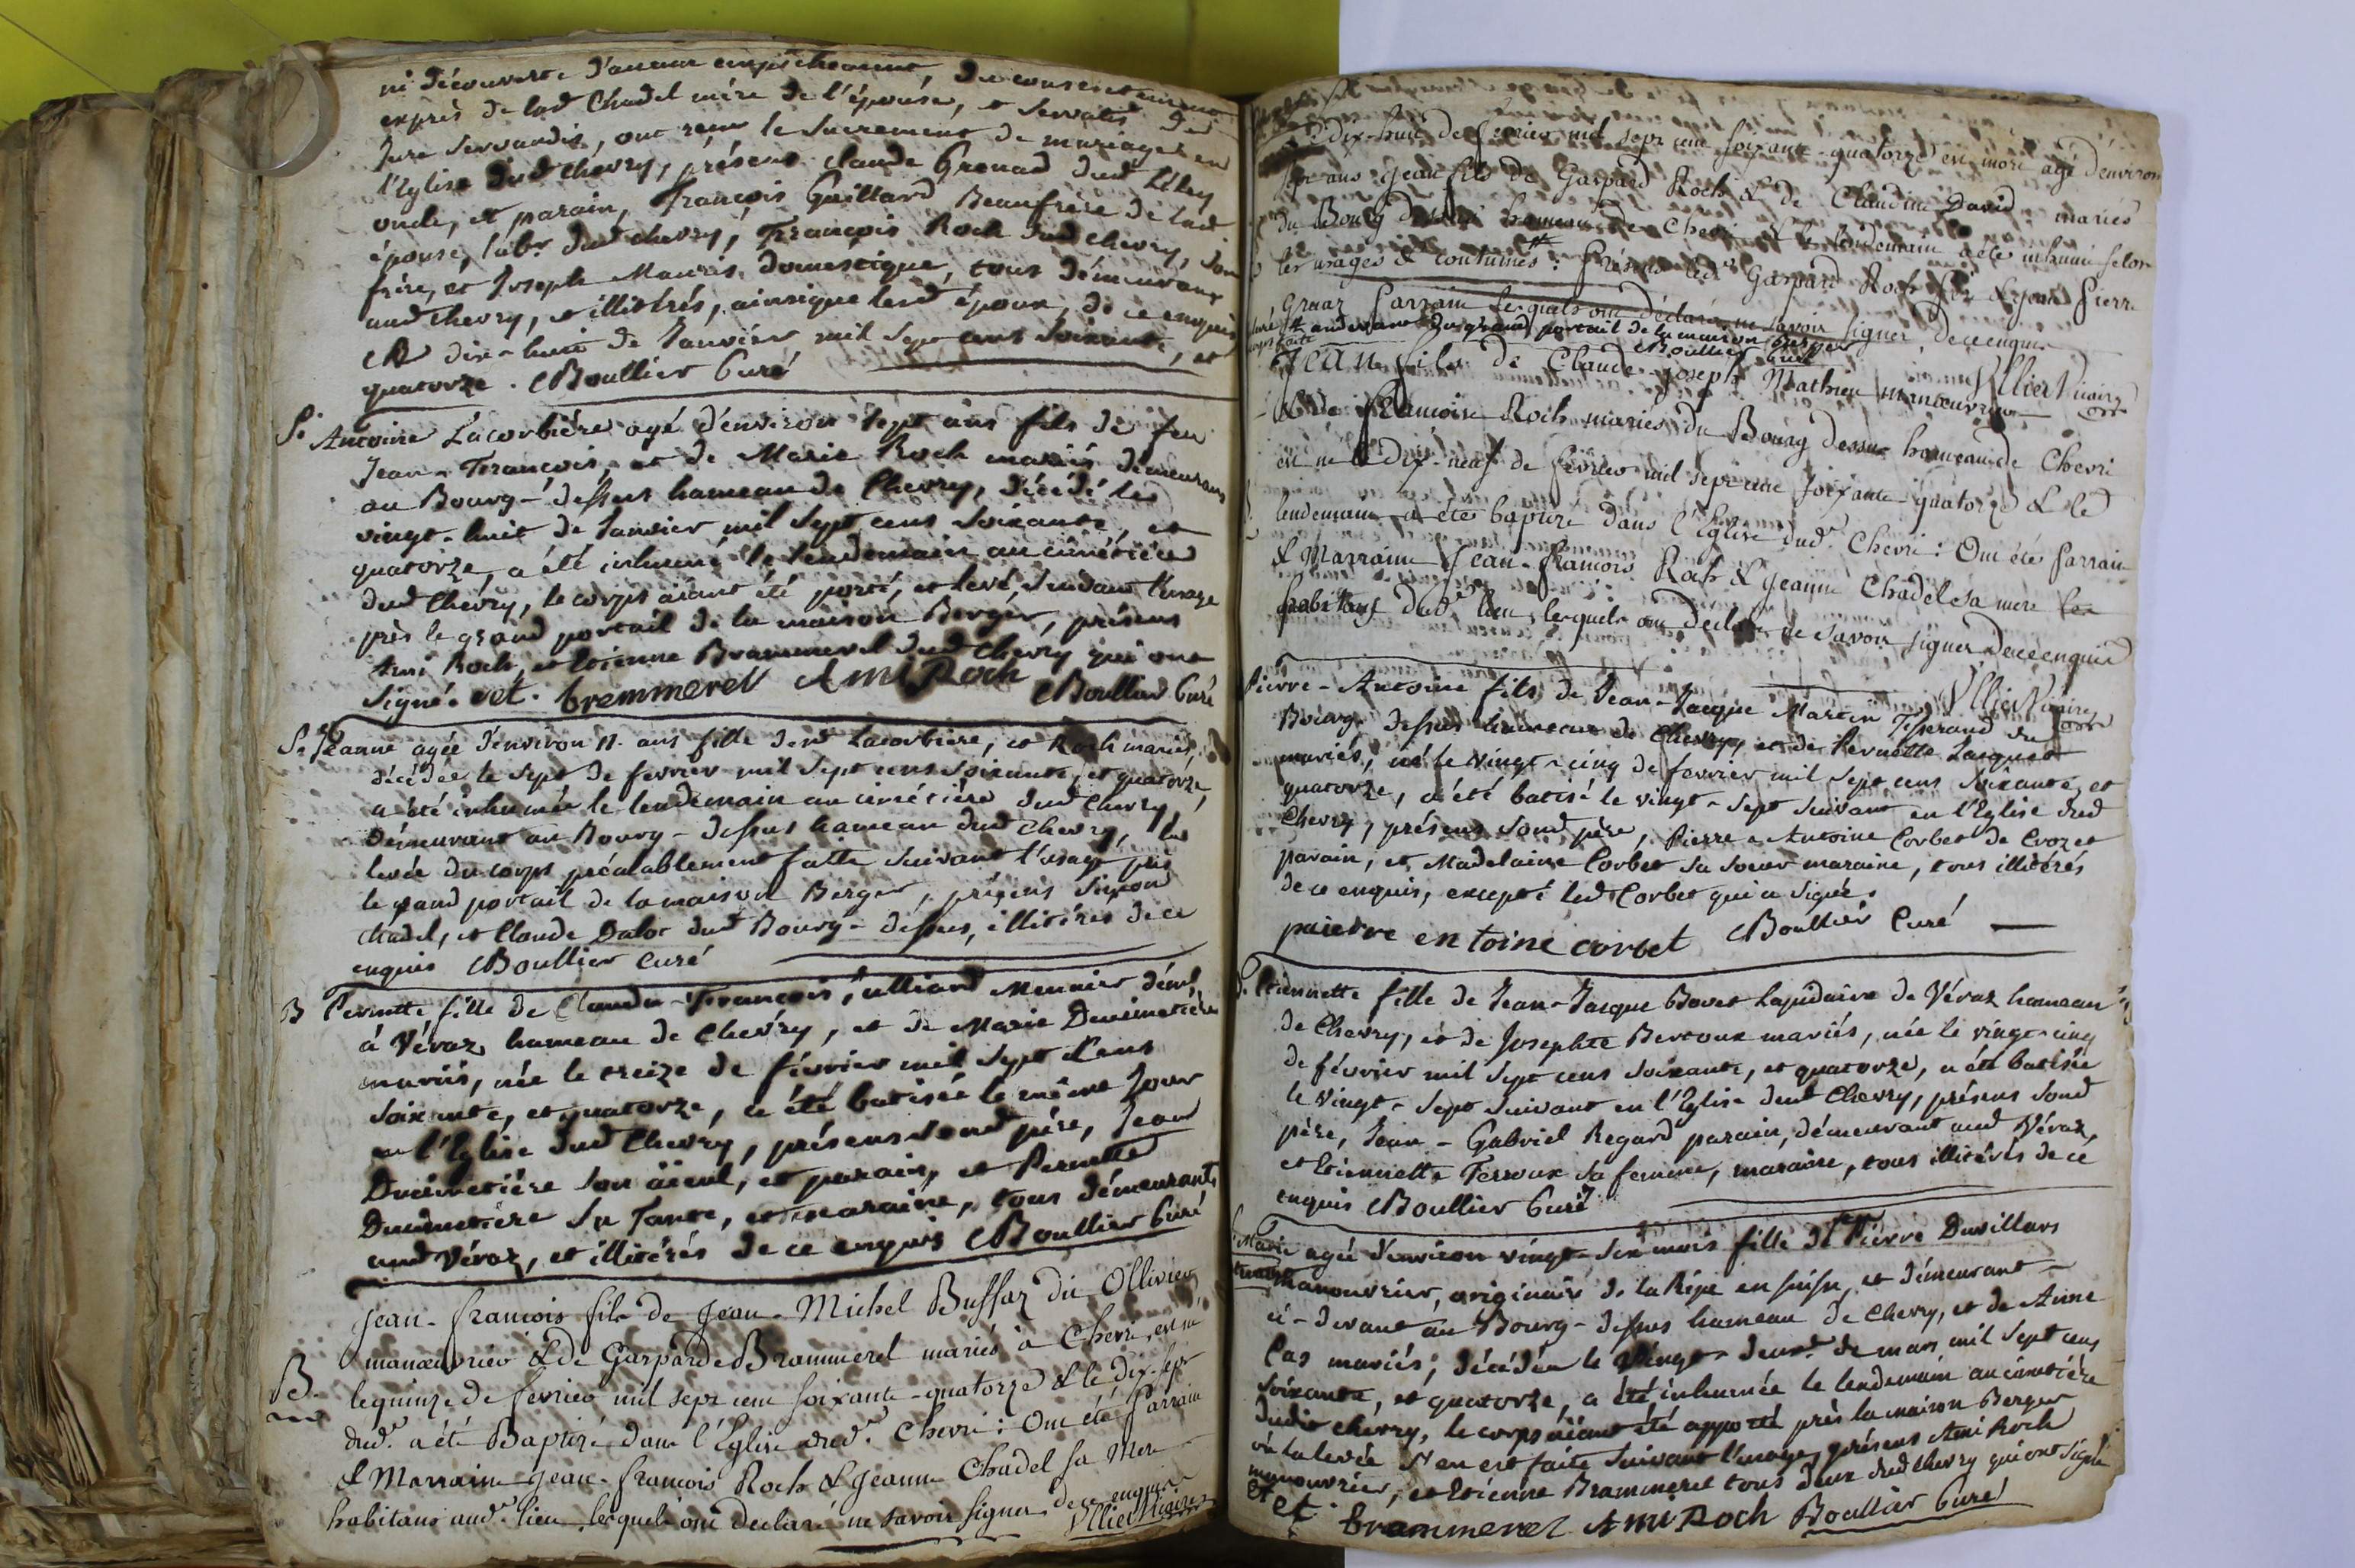 ni découverte d'aucun empêchement, du consentement
exprès de lad Chadel mère de l'épouse, et servatis de
Jure servandis, ont reçu le Sacrement de mariage en
l'Eglise dud Chevry, présens Claude Grenad dud
oncle, et parain, François Guillard Beaufrère de lad
épouse, labr. dud Chevry, François Roch dud Chevry, son
frère, et Joseph Mauris domestique, tous démeurans
aud Chevry, et illitérés, ainsique lesd époux, de ce enquis
dix-huit de Janvier mil Sept cens Soixante, et
quatorze. Boullier Curé
S. Antoine Lacorbière agé d'environ Sept ans fils de feu
Jean-François, et de Marie Roch mariés demeurans
au Bourg-dessus hameau de Chevry, décédé le
vingt-huit de Janvier mil Sept cens Soixante, et
quatorze, a été inhumé le lendemain au cimétière
dud Chevry, le corps aiant été porté, et levé, Suivant l'usage
près le grand portail de la maison Berger, présens
Ami Roch, et Etienne Brammerel dud Chevry qui ont
Signé. et. brammerel Ami Roch Boullier Curé
S. Jeanne agée d'environ 11. ans fille desd Lacorbière, et Roch mariés,
décédée le Sept de fevrier mil Sept cens Soixante, et quatorze,
a été inhumée le lendemain au cimétière dud Chevry,
Démeurant au Bourg-dessus hameau dud Chevry, la
levée du corps préalablement faite Suivant l'usage près
le grand portail de la maison Berger, présens Simon
Chadel, et Claude Dalot dud Bourg-dessus, illitérés de ce
enquis Boullier Curé
B Pernette fille de Claude-François Julliard Meunier démt.
à Véraz hameau de Chevry, et de Marie Ducimetière
mariés, née le treize de février mil Sept Cens
Soixante, et quatorze, a été batisée le même Jour
en l'Eglise dud Chevry, présens Sond père, Jean
Ducimetière Son aïeul, et parain, et Pernette
Ducimetière Sa Tante, et maraine, tous démeurants
aud Véraz, et illitérés de ce enquis Boullier Curé
B. Jean-françois fils de Jean-Michel Buffaz dit Ollivier
manœuvrier & de Gasparde Brammerel mariés à Chevri, est né
le quinze de fevrier mil sept cent soixante-quatorze & le dix-sept
dud. a été Baptizé dans l'Eglise dud. Chevri: Ont été Parrain
& Marraine Jean-françois Roch & Jeanne Chadel sa Mere
habitans aud. lieu, lesquels ont declaré ne savoir signer de ce enquis
Ullier Vicaire
dix-huit de fevrier mil sept cent soixante-quatorze est mort agé d'environ
sept ans Jean fils de Gaspard Roch & de Claudine David mariés
du Bourg dessus hameau de Chevri & le lendemain a été inhumé selon
les usages & coutumes: Présens led. Gaspard Roch & Jean Pierre
Parrain lesquels ont déclaré ne savoir signer de ce enquis
audevant du grand portail de la maison berger
Boullier Curé
Ullier Vicaire
Jean fils de Claude-Joseph Mathieu manœuvrier
& de Françoise Roch mariés du Bourg dessus hameau de Chevri
est né le dix-neuf de fevrier mil sept cent soixante-quatorze & le
lendemain a été baptizé dans l'Eglise dud. Chevri: Ont été Parrain
& Marraine Jean-François Roch & Jeanne Chadel sa mere
habitans dud. lieu, lesquels ont declaré ne savoir signer de ce enquis
Ullier Vicaire
Pierre-Antoine fils de Jean-Jacque Martin Tisserand du
Bourg-dessus hameau de Chevry, et de Pernette Lasquet
mariés, né le vingt-cinq de fevrier mil Sept cens Soixante, et
quatorze, a été batisé le vingt-Sept Suivant en l'Eglise dud
Chevry, présens Sond père, Pierre-Antoine Corbet de Crozet
parain, et Madelaine Corbet Sa Soeur maraine, tous illitérés
de ce enquis, excepté led Corbet qui a Signé.
paierre entoine corbet Boullier Curé
Etiennette fille de Jean-Jacque Bovet Lapidaire de Véraz hameau
de Chevry, et de Josephte Bertoux mariés, née le vingt-cinq
de février mil Sept cens Soixante, et quatorze, a été batisée
le vingt-Sept Suivant en l'Eglise dud Chevry, présens Sond
père, Jean-Gabriel Regard parain, démeurant aud Véraz,
et Etiennette Ferroux Sa femme, maraine, tous illitérés de ce
enquis Boullier Curé
Marie agée d'environ vingt-Six mois fille de feu Pierre Duvillars
manouvrier, originaire de la Ripe en Suisse, et démeurant
ci-devant au Bourg-dessus hameau de Chevry, et de Anne
Cas mariés; décédée le vingt-deux de mars mil Sept cens
Soixante, et quatorze, a été inhumée le lendemain au cimétière
dudit Chevry, le corps aiant été apporté près la maison Berger
où la levée S'en est faite Suivant l'usage, présens Ami Roch
manouvrier, et Etienne Brammerel tous deux dud Chevry qui ont Signé
et brammerel Ami Roch Boullier Curé